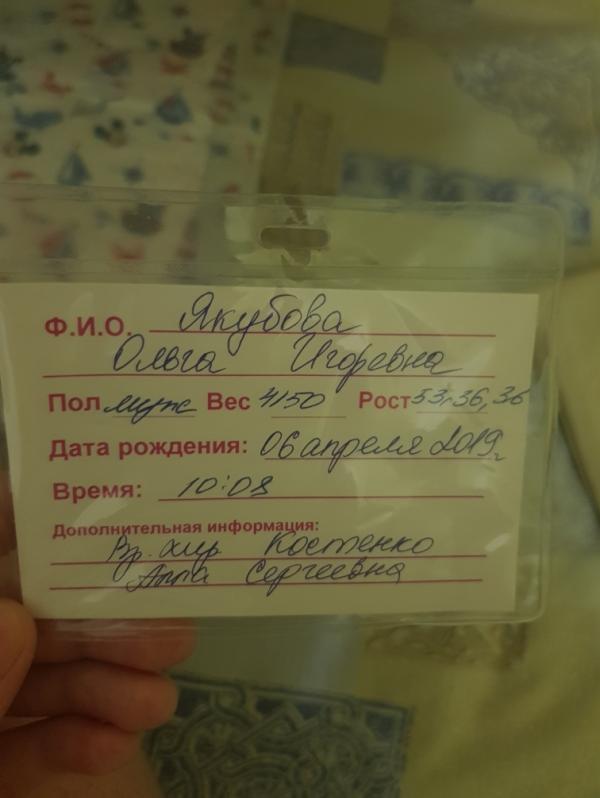 Ф.И.О. Якубова
Ольга Игоревна
Пол муж Вес 4150 Рост 53, 36, 36
Дата рождения: 06 апреля 2019г
Время: 10:08
Дополнительная информация:
Вр. хир. Костенко
Алла Сергеевна